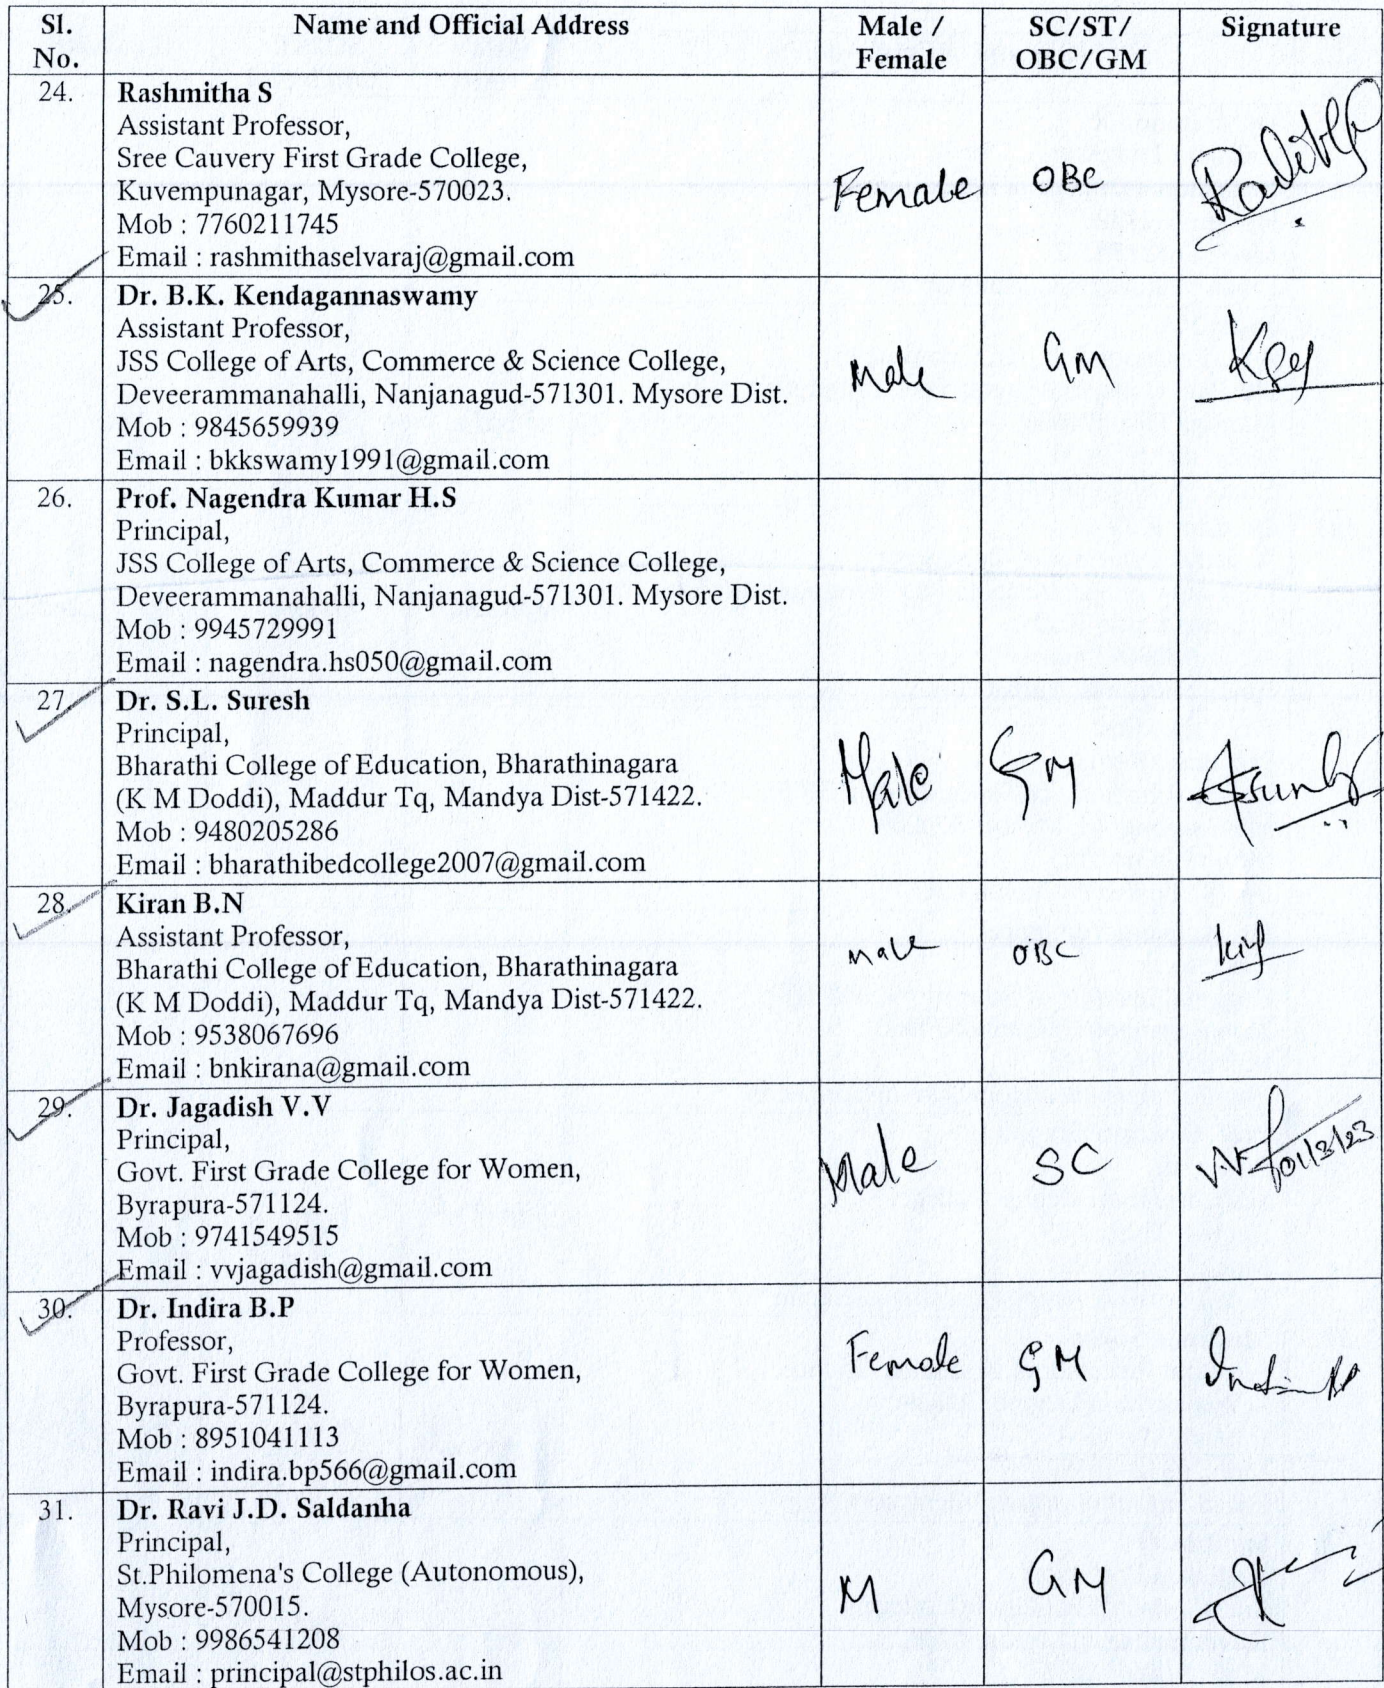 Sl. No. Name and Official Address Male / Female SC/ST/ OBC/GM Signature
24. Rashmitha S
Assistant Professor,
Sree Cauvery First Grade College,
Kuvempunagar, Mysore-570023.
Mob : 7760211745
Email : rashmithaselvaraj@gmail.com
Female OBC
25. Dr. B.K. Kendagannaswamy
Assistant Professor,
JSS College of Arts, Commerce & Science College,
Deveerammanahalli, Nanjanagud-571301. Mysore Dist.
Mob : 9845659939
Email : bkkswamy1991@gmail.com
Male GM
26. Prof. Nagendra Kumar H.S
Principal,
JSS College of Arts, Commerce & Science College,
Deveerammanahalli, Nanjanagud-571301. Mysore Dist.
Mob : 9945729991
Email : nagendra.hs050@gmail.com
27. Dr. S.L. Suresh
Principal,
Bharathi College of Education, Bharathinagara
(K M Doddi), Maddur Tq, Mandya Dist-571422.
Mob : 9480205286
Email : bharathibedcollege2007@gmail.com
Male GM
28. Kiran B.N
Assistant Professor,
Bharathi College of Education, Bharathinagara
(K M Doddi), Maddur Tq, Mandya Dist-571422.
Mob : 9538067696
Email : bnkirana@gmail.com
Male OBC
29. Dr. Jagadish V.V
Principal,
Govt. First Grade College for Women,
Byrapura-571124.
Mob : 9741549515
Email : vvjagadish@gmail.com
Male SC 01/3/23
30. Dr. Indira B.P
Professor,
Govt. First Grade College for Women,
Byrapura-571124.
Mob : 8951041113
Email : indira.bp566@gmail.com
Female GM
31. Dr. Ravi J.D. Saldanha
Principal,
St.Philomena's College (Autonomous),
Mysore-570015.
Mob : 9986541208
Email : principal@stphilos.ac.in
M GM